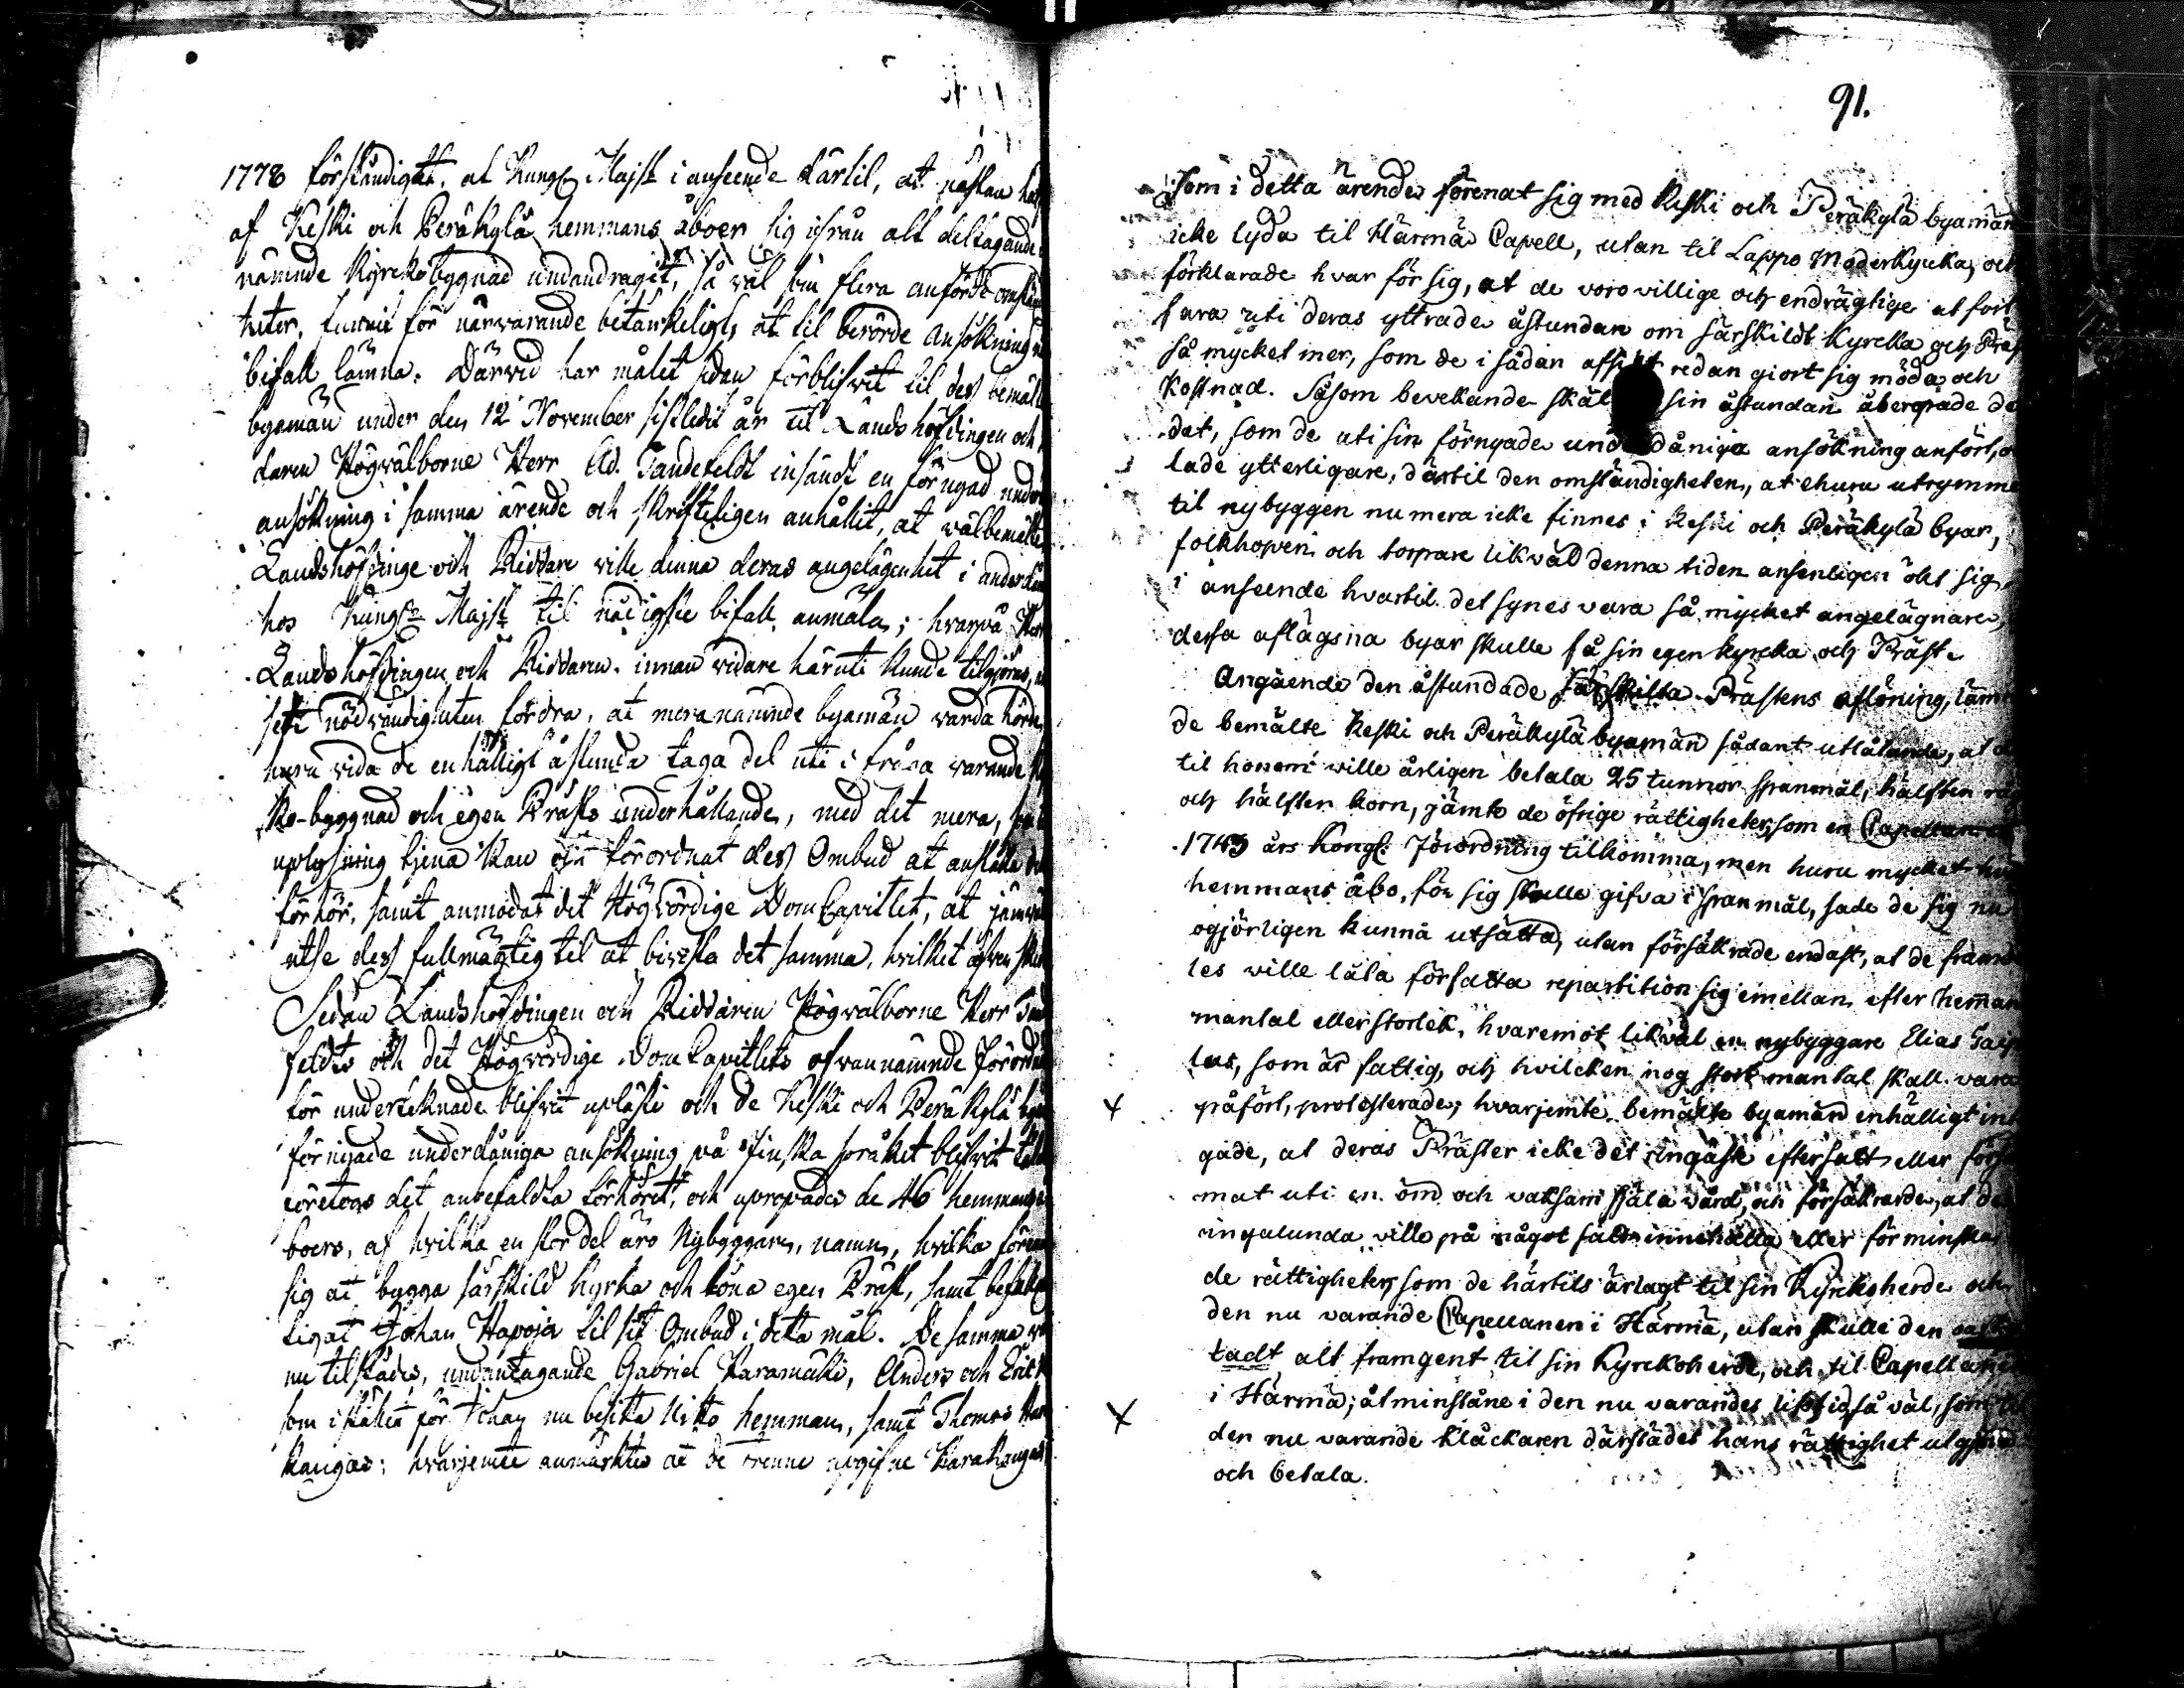 1778 förständigat, at Kungl. Majst i anseende därtil, at nästan
af Keski och Peräkylä hemmans åboer sig ifrån alt deltagande
nämnde Kyrckobygnad undandragit, så väl som flera anförde
heter, funnit för närvarande betänkeligt, at til berörde ansökning
bifall lämna. Därvid har målet sedan förblifvit til des
byamän under den 12 November sistledit år til Landshöfdingen och
daren Högvälborne Herr Ad. Tandefeldt insändt en förnyad
ansökning i samma ärende och skrifteligen anhållit, at välbemälte
Landshöfdinge och Riddare ville denna deras angelägenhet i
hos Kungl. Majst til nådigste bifall anmäla; hvarpå
Landshöfdingen och Riddaren, innan vidare häruti kunde tilgöras,
sett nödvändigheten fordra, at meranämnde byamän varda hörde,
huru vida de enhälligt åstunda taga del uti i fråga varande
ko-byggnad och egen Prästs underhållande, med det mera,
uplysning tjena kan förordnat des Ombud at anställa
förhör, samt anmodat det Högvördige DomCapitlet, at
utse des fullmägtig til at bivista det samma, hvilket
Sedan Landshöfdingen och Riddaren Högvälborne Herr
feldts och det Högvördige DomCapitlets ofvannämnde
för undertecknade blifvit upläste och de Keski och Peräkylä
förnyade underdåniga ansökning på Finska språket blifvit
företogs det anbefaldta förhöret, och upropades de 46 hemmans
boers, af hvilka en stor del äro Nybyggare, namn, hvilka
sig at bygga särskild Kyrka och löna egen Präst, samt
tigat Johan Hapoja til sit Ombud i detta mål. De samma
nu tilstädes, undantagande Gabriel Haramäki, Anders och
som i stället för Johan nu besitta hemman, samt Thomas
kangas; hvarjemte anmärktes at de trenne upgifne Karakangas
91.
som i detta ärende förenat sig med Keski och Peräkylä byamän
icke lyda til Härmä Capell, utan til Lappo Moderkyrka, och
förklarade hvar för sig, at de voro villige och endrägtige at fort
fara uti deras yttrade åstundan om särskildt Kyrcka och
så mycket mer, som de i sådan redan giort sig möda och
kostnad. Såsom bevekande skäl sin åstundan åberopade de
det, som de uti sin förnyade ansökning anfört,
lade ytterligare, därtil den omständigheten, at ehuru utrymme
til nybyggen numera icke finnes i Keski och Peräkylä byar,
folkhopen och torpare likväl denna tiden ansenligen ökt sig,
i anseende hvartil det synes vara så mycket angelägnare,
dessa aflägsna byar skulle få sin egen kyrcka och Präst.
Angående den åstundade särskilta Prästens aflöning,
de bemälte Keski och Peräkylä byamän sådant utlåtande, at
til honom ville årligen betala 25 tunnor spanmål, hälften
och hälften korn, jämte de öfrige rättigheter, som en
1743 års Kongl. Förordning tilkomma, men huru mycket
hemmans åbo, för sig skulle gifva i spanmål, sade de sig nu
ogjörligen kunna utsätta, utan försäkrade endast, at de
les ville låta författa repartition sig emellan efter
mantal eller storlek, hvaremot likväl en nybyggare Elias
lus, som är fattig, och hvilcken nog stort mantal skall vara
påfört, protesterade; hvarjemte bemälte byamän enhälligt
gade, at deras Präster icke det ringaste eftersatt eller
mat uti en öm och vaksam själa vård, och försäkrade, at de
ingalunda ville på något sätt innehålla eller förminska
de rättigheter, som de härtils ärlagt til sin Kyrckoherde och
den nu varande Capellanen i Härmä, utan skulle den
tadt alt framgent til sin Kyrckoherde, och til
i Härmä; åtminstone i den nu varandes lifstid så väl, som
den nu varande klåckaren därstädes hans rättighet
och betala.